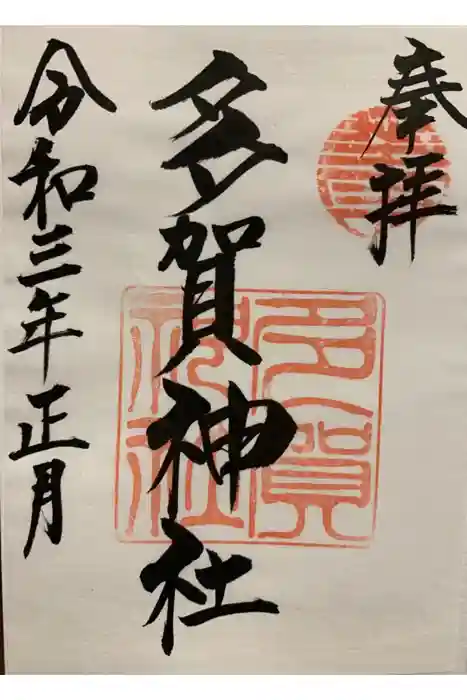 奉拝
多賀神社
令和三年正月
多賀
神社